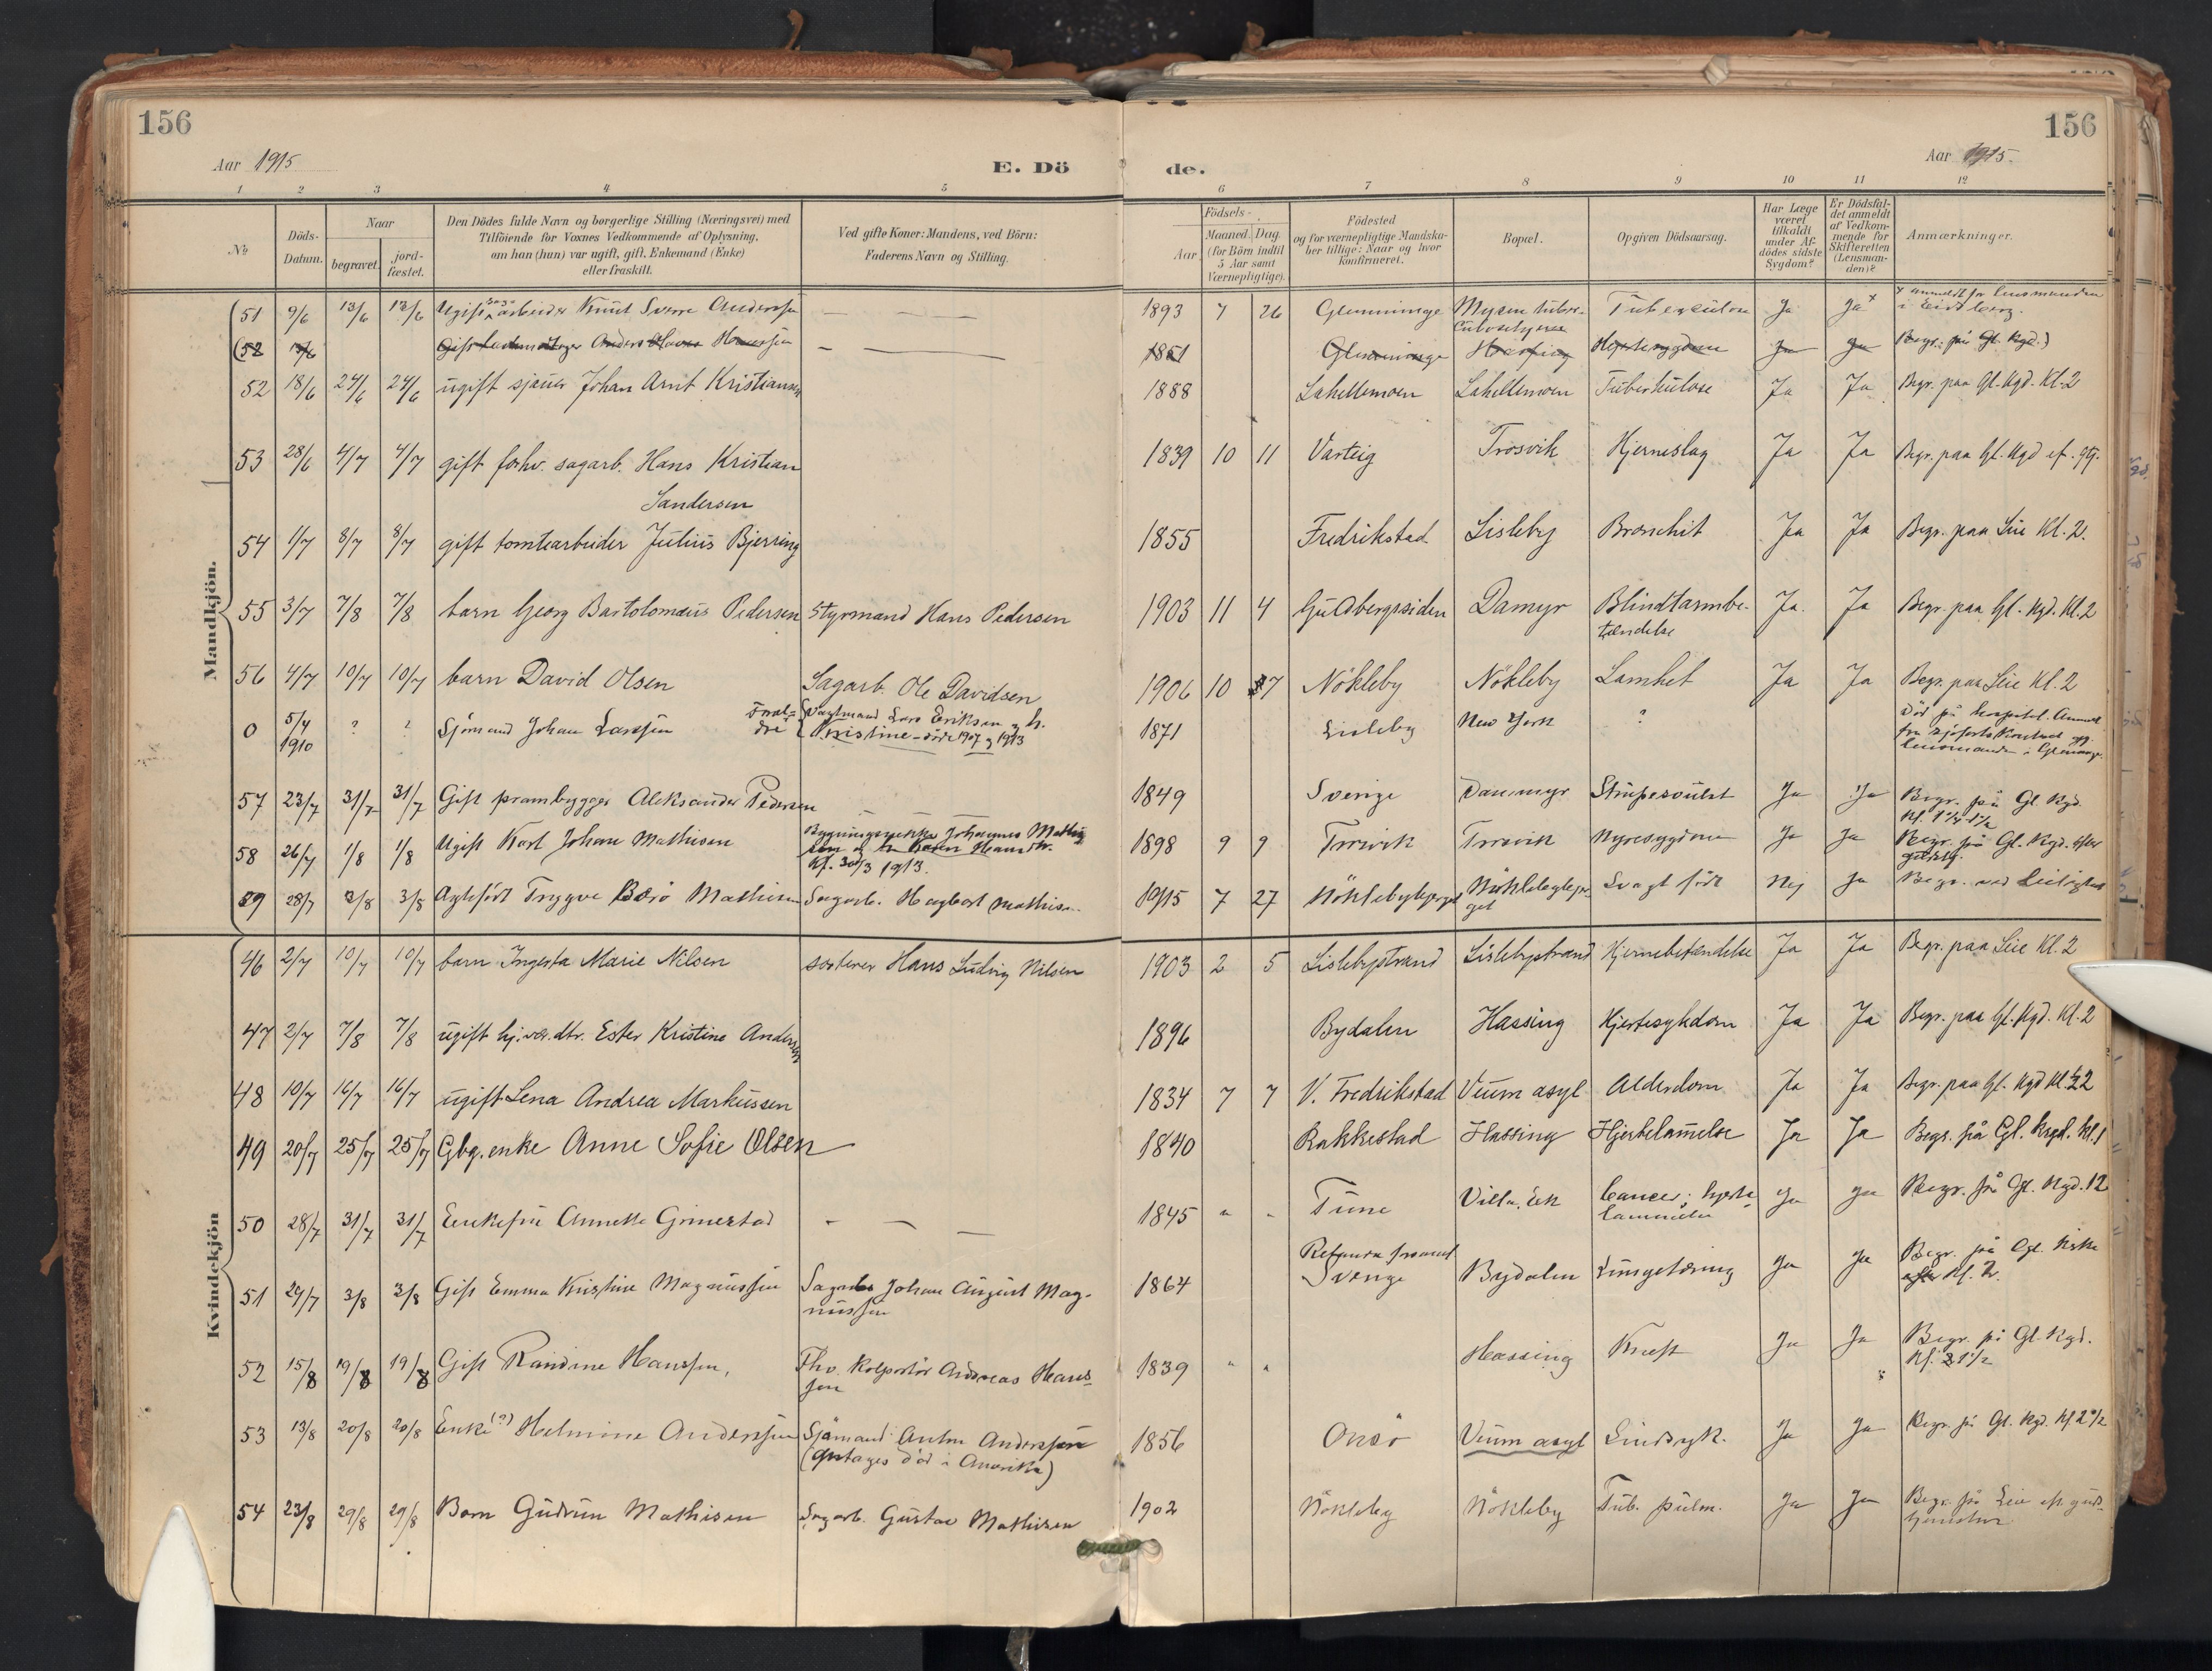 156
156
Aar 1915.
E. Dö
de.
Aar 1915.
1 2 3 4 5 6 7 8 9 10 11 12
No
Döds-Datum.
Naar
begravet.
jord-fæstet.
Den Dödes fulde Navn og borgerlige Stilling (Næringsvei) med
Tilföiende for Voxnes Vedkommende af Oplysning,
om han (hun) var ugift, gift, Enkemand (Enke)
eller fraskilt.
Ved gifte Koner: Mandens, ved Börn:
Faderens Navn og Stilling.
Födsels-
Aar
Maaned. Dag.
(for Börn indtil
5 Aar samt
Værnepligtige).
Födested
og for værnepligtige Mandska-
ber tillige: Naar og hvor
konfirmeret.
Bopæl.
Opgiven Dödsaarsag.
Har Læge
været
tilkaldt
under Af-
dödes sidste
Sygdom?
Er Dödsfal-
det anmeldt
af Vedkom-
mende for
Skifteretten
(Lensman-
den)?
Anmærkninger.
Mandkjön.
51 9/6 13/6 13/6 Ugift arbeider Knut Sverre Andersen — 1893 7 26 Glemminge Mysen tuber- Tuberculose Ja Ja x
x anmeldt for lensmanden
i Eidsberg.
(52 Gift Anders Hansen — 1851 Glemminge Hassing Hjertesygdom Ja Ja Begr. på Gl. Kgd.)
52 18/6 24/6 24/6 ugift sjauer Johan Arnt Kristiansen 1888 Lahellemoen Lahellemoen Tuberkulose Ja Ja Begr. paa Gl. Kgd. Kl. 2
53 28/6 4/7 4/7 gift forhv. sagarb. Hans Kristian
Sandersen 1839 10 11 Varteig Trosvik Hjerneslag Ja Ja Begr. paa Gl. Kgd ef. gtj.
54 1/7 8/7 8/7 gift tomtearbeider Julius Bjerring 1855 Fredrikstad Lisleby Bronchit Ja Ja Begr. paa Leie Kl. 2.
55 3/7 7/8 7/8 barn Georg Bartolomæus Pedersen Styrmand Hans Pedersen 1903 11 4 Gudbergssiden Damyr Blindtarmbe-
tændelse Ja Ja Begr. paa Gl. Kgd. Kl. 2
56 4/7 10/7 10/7 barn David Olsen Sagarb. Ole Davidsen 1906 10 7 Nökleby Nökleby Lamhet Ja Ja Begr. paa Leie Kl. 2
0 5/4 1910 ? ? Sjömand Johan Larssen Foræl-dre Vagtmand Lars Eriksen og h.
Kristine – döde 1907 og 1913 1871 Lisleby New York ? Död på hospital. Anmeldt
57 23/7 31/7 31/7 Gift prambygger Aleksander Pedersen — 1849 Sverige Dammyr Strupesvulst Ja Ja Begr. på Gl. Kgd.
58 26/7 1/8 1/8 Ugift Karl Johan Mathisen Bygningssnekker Johannes Mathi-
sen og h. Karen Hansdtr.
Kf. 30/3 1913. 1898 9 9 Trosvik Trosvik Nyresygdom Ja Ja Begr. på Gl. Kgd. efter
59 28/7 3/8 3/8 Ægtefödt Trygve Mathisen Sagarb. Hagbart Mathisen 1915 7 27 Nöklebybjerget Nöklebybjer-
get Svagt född Nej Ja Begr. ved Leilighet
Kvindekjön
46 2/7 10/7 10/7 barn Ingerta Marie Nilsen sorterer Hans Ludvig Nilsen 1903 2 5 Lislebystrand Lislebystrand Hjernebetændelse Ja Ja Begr. paa Leie Kl. 2
47 2/7 7/8 7/8 ugift hj.vær. dtr. Ester Kristine Andersen 1896 Bydalen Hassing Hjertesykdom Ja Ja Begr. paa Gl. Kgd. Kl. 2
48 10/7 16/7 16/7 ugift Lena Andrea Markussen 1834 7 7 V. Fredrikstad Veum asyl Alderdom Ja Ja Begr. paa Gl. Kgd Kl. 2
49 20/7 25/7 25/7 Gbg. enke Anne Sofie Olsen 1840 Rakkestad Hassing Hjertelammelse Ja Ja Begr. på Gl. Kgd. Kl. 1
50 28/7 31/7 31/7 Enkefru Annette Grimestad — 1845 " " Tune Villa Ek Cancer; hjerte-
lammelse Ja Ja Begr. på Gl. Kgd. 12
51 29/7 3/8 3/8 Gift Emma Kristine Magnussen Sagarb. Johan August Mag-
nussen 1864 Sverige Bydalen Lungetæring Ja Ja Begr. på Gl. Kirke
Kl. 2.
52 15/8 19/8 19/8 Gift Randine Hanssen, Fhv. Kolportör Andreas Hans-
sen 1839 " " Hassing Kræft Ja Ja Begr. på Gl. Kgd.
Kl. 1 1/2
53 13/8 20/8 20/8 Enke (?) Helmine Anderssen Sjömand Anton Anderssen
(Antages död i Amerika) 1856 Onsö Veum asyl Sindssyk. Ja Ja Begr. på Gl. Kgd. Kl 2 1/2
54 23/8 29/8 29/8 Barn Gudrun Mathisen Sagarb. Gustav Mathisen 1902 Nökleby Nökleby Tub. pulm. Ja Ja Begr. på Leie eft. guds-
tjeneste